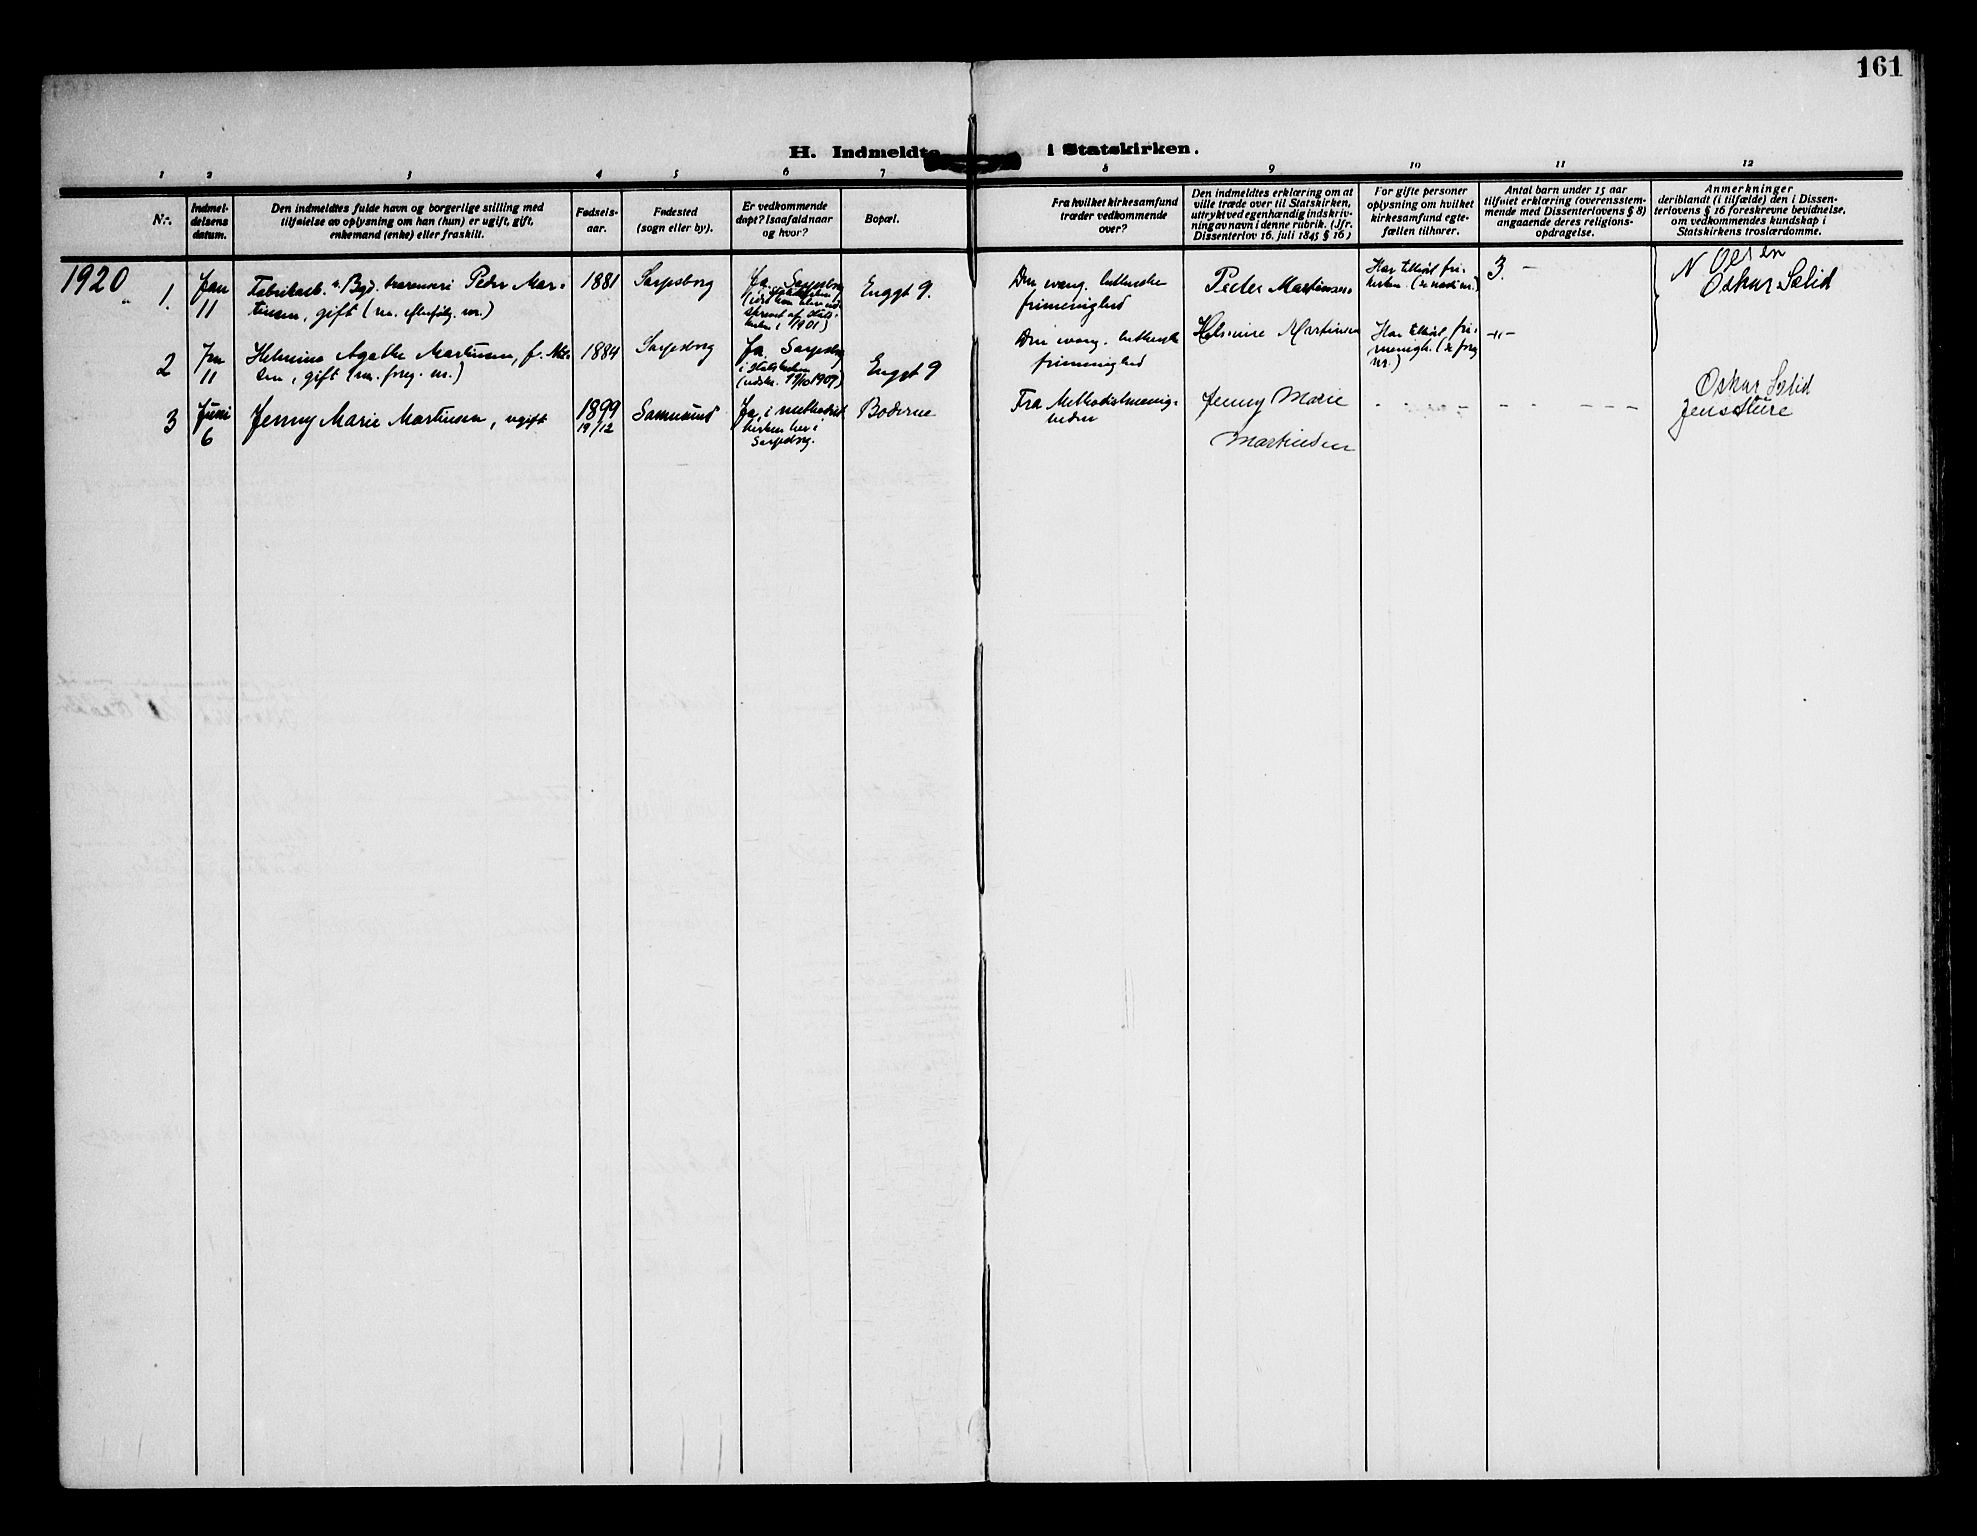 161
H. Indmeldte i Statskirken.
1 2 3 4 5 6 7 8 9 10 11 12
Nr.
Indmel-
delsens
datum.
Den indmeldtes fulde navn og borgerlige stilling med
tilføielse av oplysning om han (hun) er ugift, gift,
enkemand (enke) eller fraskilt.
Fødsels-
aar.
Fødested
(sogn eller by).
Er vedkommende
døpt? Isaafald naar
og hvor?
Bopæl.
Fra hvilket kirkesamfund
træder vedkommende
over?
Den indmeldtes erklæring om at
ville træde over til Statskirken,
uttrykt ved egenhændig indskriv-
ning av navn i denne rubrik. (Jfr.
Dissenterlov 16. juli 1845 § 16)
For gifte personer
oplysning om hvilket
kirkesamfund egte-
fællen tilhører.
Antal barn under 15 aar
tilføiet erklæring (overensstem-
mende med Dissenterlovens § 8)
angaaende deres religions-
opdragelse.
Anmerkninger
deriblandt (i tilfælde) den i Dissen-
terlovens § 16 foreskrevne bevidnelse,
om vedkommendes kundskap i
Statskirkens troslærdomme.
1920
1.
Jan
11
Fabrikarb. Peder Mar-
tinsen, gift (m. efterfølg. nr.)
1881
Sarpsborg
Ja. Sarpsborg
1901)
Enggt 9.
Den evang. lutherske
frimenighed
Peder Martinsen
Har tilhört fri-
kirken.
3. –
N Olsen
Oskar Sælid
2
Jan
11
Helmine Agathe Martinsen, f. Niel-
sen, gift (m. foreg. nr.)
1884
Sarpsborg
Ja. Sarpsborg
i Statskirken
(udtr. 19/10 1907)
Enggt 9
Den evang. lutherske
frimenighed
Helmine Martinsen
Har tilhört fri-
menigh. (se foreg
nr.)
–"–
3
Juni
6
Jenny Marie Martinsen, ugift
1899
19/12
Ja, i methodist
kirken her i
Sarpsborg.
Boderne
Fra Methodistmenig-
heden
Jenny Marie
Martinsen
– – – –
Oskar Sælid
Jens Sture